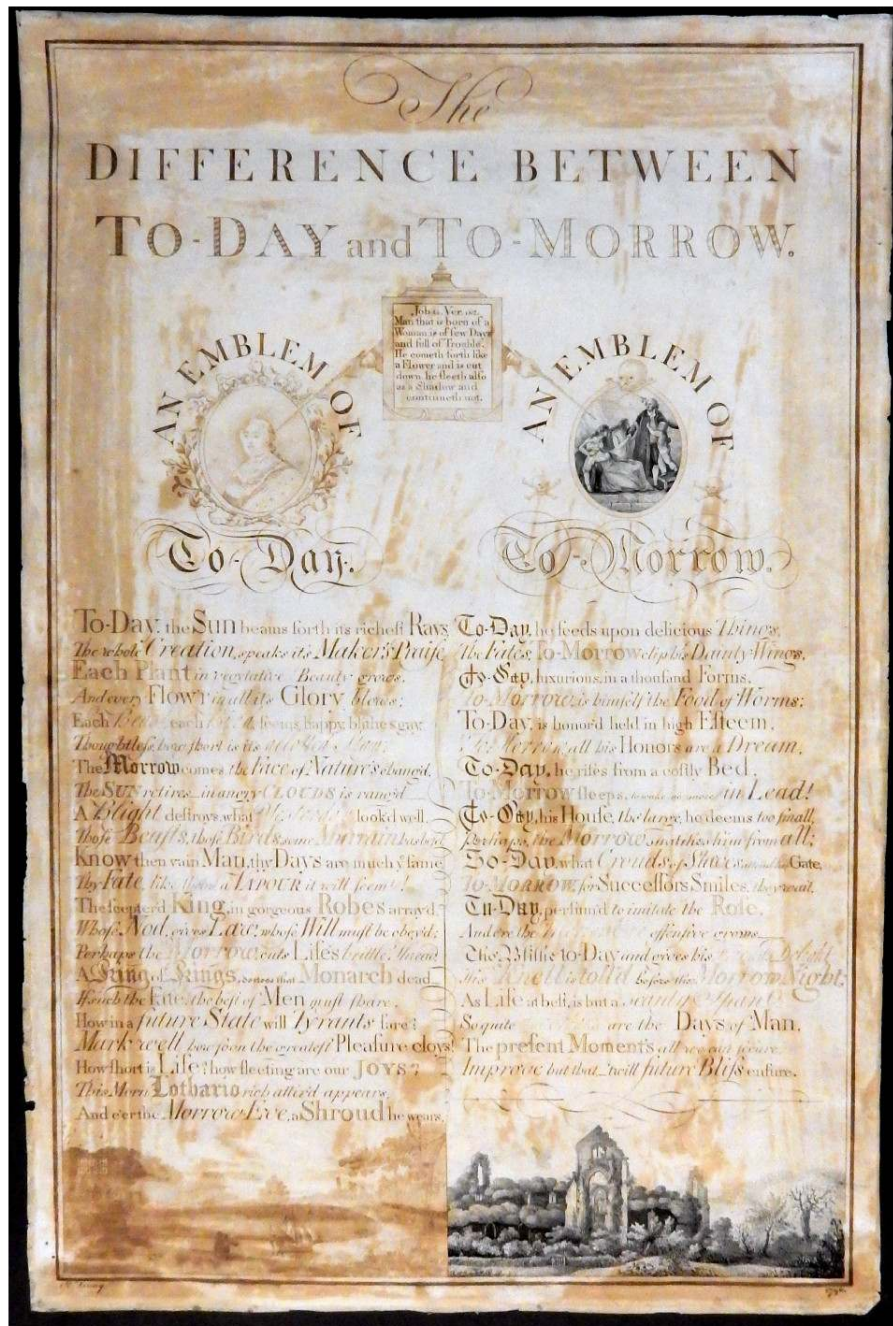 The
DIFFERENCE BETWEEN
TO-DAY and TO-MORROW.
Job Ver.
Man that is born of a
Woman is of few Days
and full of Trouble.
He cometh forth like
a Flower and is cut
down, he fleeth also
as a Shadow and
continueth not.
AN EMBLEM OF
To-Day.
AN EMBLEM OF
To-Morrow.
To-Day, the Sun beams forth its richest Rays,
The whole Creation, speaks its Maker's Praise
Each Plant in vegetative Beauty grows,
And every Flow'r in all its Glory blows;
Each each seems happy, blithe & gay,
Thoughtless, how short is its
The Morrow comes the Face of Nature's chang'd,
The SUN retires in angry CLOUDS is rang'd
A Blight destroys, what look'd well,
Those Beasts, those Birds some Murrain
Know then vain Man, thy Days are much ye same
Thy Fate, like a VAPOUR it will seem!
The scepter'd King, in gorgeous Robes array'd,
Whose Nod, gives Law, whose Will must be obey'd;
Perhaps the Morrow cuts Lifes brittle Thread
A King of Kings, that Monarch dead
If such the Fate, the best of Men must share,
How in a future State will Tyrants fare?
Mark well how soon the greatest Pleasure cloys!
How short is Life! how fleeting are our JOYS?
This Morn Lothario rich attir'd appears,
And e'er the Morrow Eve, a Shroud he wears,
To-Day, he feeds upon delicious Things,
The Fates, To-Morrow clip his Dainty Wings,
To-Day, luxurious, in a thousand Forms,
To-Morrow, is himself the Food of Worms;
To-Day, is honor'd held in high Esteem,
To-Morrow, all his Honors are a Dream,
To-Day, he rises from a costly Bed,
To-Morrow sleeps, in Lead!
To-Day, his House, tho large, he deems too small,
Perhaps, the Morrow snatches him from all;
To-Day, what Crouds of Gate,
To-MORROW, for Successors Smiles, they wait,
To-Day, perfum'd to imitate the Rose,
And ere the offensive grows
This, Blisse to-Day and gives his Delight
His Knell is toll'd before the Morrow Night;
As Life at best, is but a scanty Span
So quite are the Days of Man,
The present Moment's all we can secure
Improve but that 'twill future Bliss ensure.